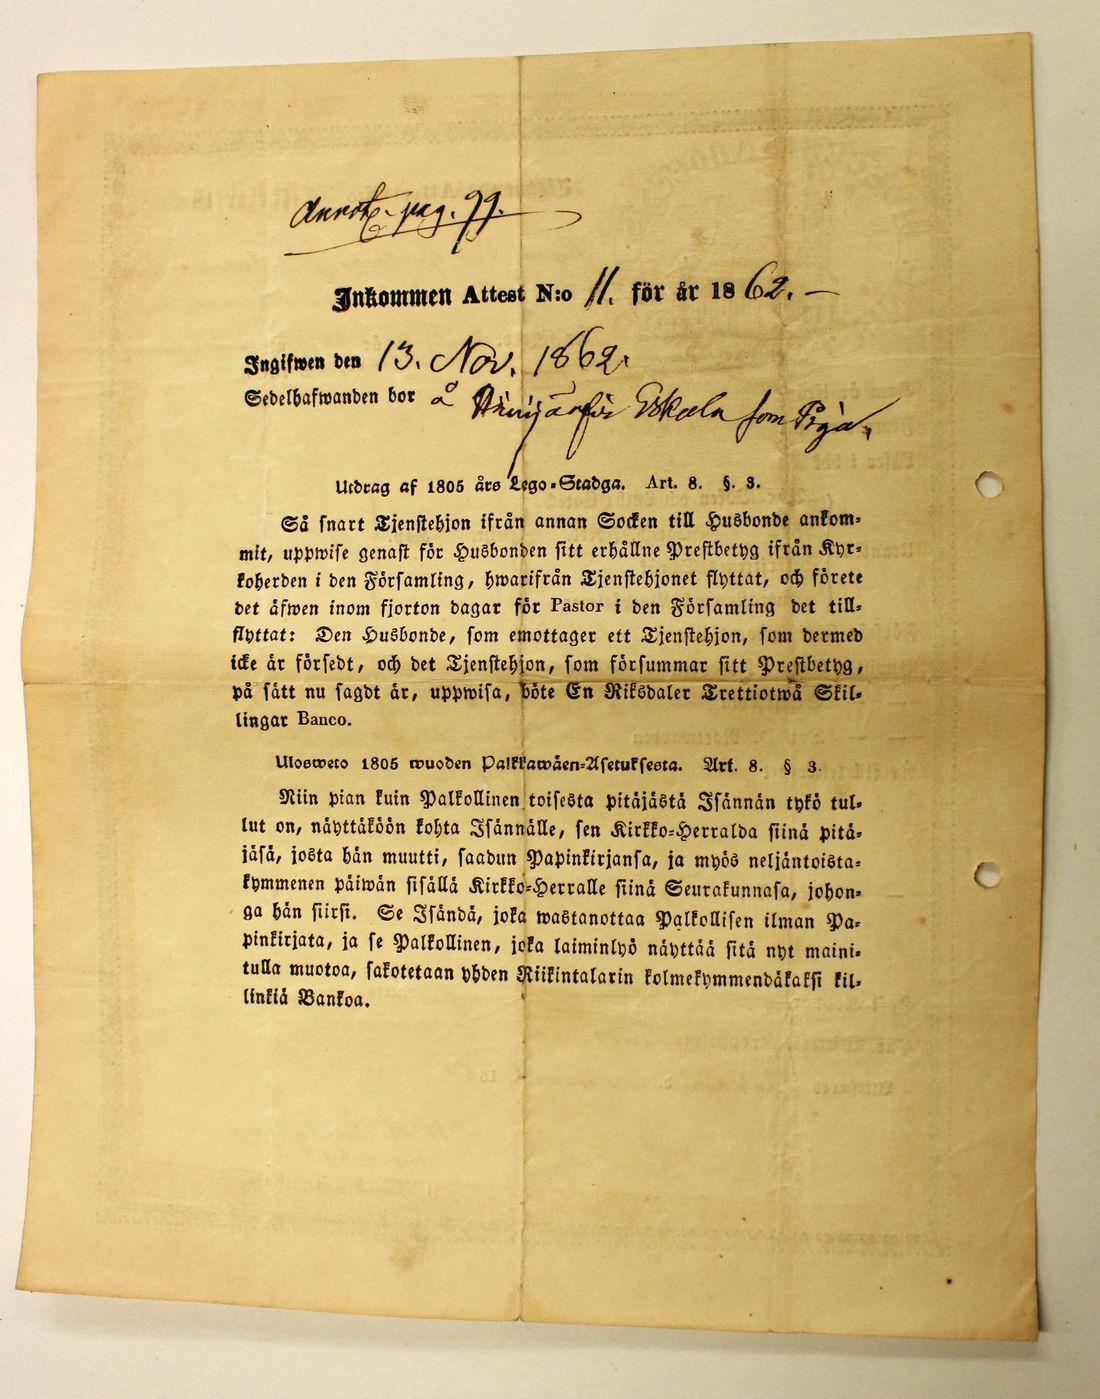 Annot. pag. 99.
Inkommen Attest N:o 11. för år 1862. —
Ingifwen den 13. Nov. 1862.
Sedelhafwanden bor å som Piga.
Utdrag af 1805 års Lego-Stadga. Art. 8. §. 3.
Så snart Tjenstehjon ifrån annan Socken till Husbonde ankom-
mit, uppwise genast för Husbonden sitt erhållne Prestbetyg ifrån Kyr-
koherden i den Församling, hwarifrån Tjenstehjonet flyttat, och förete
det äfwen inom fjorton dagar för Pastor i den Församling det till-
flyttat: Den Husbonde, som emottager ett Tjenstehjon, som dermed
icke är försedt, och det Tjenstehjon, som försummar sitt Prestbetyg,
på sätt nu sagdt är, uppwisa, böte En Riksdaler Trettiotwå Skil-
lingar Banco.
Ulosweto 1805 wuoden Palkkawäen-Asetuksesta. Art. 8. § 3.
Niin pian kuin Palkollinen toisesta pitäjästä Isännän tykö tul-
lut on, näyttäköön kohta Isännälle, sen Kirkko-Herralda siinä pitä-
jäsä, josta hän muutti, saadun Papinkirjansa, ja myös neljäntoista-
kymmenen päiwän sisällä Kirkko-Herralle siinä Seurakunnasa, johon-
ga hän siirsi. Se Isändä, joka wastanottaa Palkollisen ilman Pa-
pinkirjata, ja se Palkollinen, joka laiminlyö näyttää sitä nyt maini-
tulla muotoa, sakotetaan yhden Riikintalarin kolmekymmendäkaksi kil-
linkiä Bankoa.